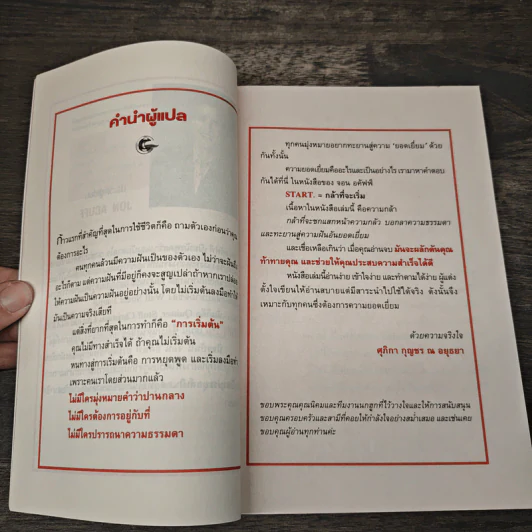 คำนำผู้แปล
ก้าวแรกที่สำคัญที่สุดในการใช้ชีวิตก็คือ ถามตัวเองก่อนว่าคุณ
ต้องการอะไร
คนทุกคนล้วนมีความฝันเป็นของตัวเอง ไม่ว่าจะฝัน
อะไรก็ตาม แต่ความฝันที่มีอยู่ก็คงจะสูญเปล่าถ้าหากเราปล่อย
ให้ความฝันเป็นความฝันอยู่อย่างนั้น โดยไม่เริ่มต้นลงมือทำ
มันเป็นความจริงเสียที
แต่สิ่งที่ยากที่สุดในการทำก็คือ "การเริ่มต้น"
คุณไม่มีทางสำเร็จได้ ถ้าคุณไม่เริ่มต้น
หนทางสู่การเริ่มต้นคือ การหยุดพูด และเริ่มลงมือทำ
เพราะคนเราโดยส่วนมากแล้ว
ไม่มีใครมุ่งหมายคำว่าปานกลาง
ไม่มีใครต้องการอยู่กับที่
ไม่มีใครปรารถนาความธรรมดา
ทุกคนมุ่งหมายอยากทะยานสู่ความ 'ยอดเยี่ยม' ด้วย
กันทั้งนั้น
ความยอดเยี่ยมคืออะไรและเป็นอย่างไร เรามาหาคำตอบ
กันได้ที่นี่ ในหนังสือของ จอน อคัฟฟ์
START. = กล้าที่จะเริ่ม
เนื้อหาในหนังสือเล่มนี้ คือความกล้า
กล้าที่จะชกแสกหน้าความกลัว บอกลาความธรรมดา
และทะยานสู่ความฝันอันยอดเยี่ยม
และเชื่อเหลือเกินว่า เมื่อคุณอ่านจบ มันจะผลักดันคุณ
ท้าทายคุณ และช่วยให้คุณประสบความสำเร็จได้ดี
หนังสือเล่มนี้อ่านง่าย เข้าใจง่าย และทำตามได้ง่าย ผู้แต่ง
ตั้งใจเขียนให้อ่านสบายแต่มีสาระนำไปใช้ได้จริง ดังนั้นจึง
เหมาะกับทุกคนซึ่งต้องการความยอดเยี่ยม
ด้วยความจริงใจ
ศุภิกา กุญชร ณ อยุธยา
ขอบพระคุณคุณนิคมและทีมงานนกฮูกที่ไว้วางใจและให้การสนับสนุน
ขอบคุณครอบครัวและสามีที่คอยให้กำลังใจอย่างสม่ำเสมอ และเช่นเคย
ขอบคุณผู้อ่านทุกท่านค่ะ